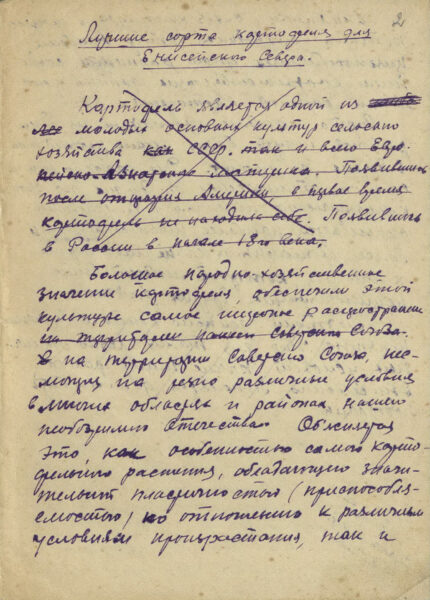 2
Лучшие сорта картофеля для
Енисейского Севера.
Картофель является одной из
молодых основных культур сельско
хозяйства как СССР, так и всего Евро
пейско-Азиатского материка. Появившись
после открытия Америки в первое время
картофель не находил себе. Появившись
в России в начале 18го века,
Большое народно-хозяйственное
значение картофеля, обеспечили этой
культуре самое широкое распространение
на территории нашего Советского Союза.
в на территории Советского Союза, нес-
мотря на резко различные условия
в многих областях и районах нашего
необъятного Отечества. Объясняется
это, как особенностью самого карто-
фельного растения, обладающего значи-
тельной пластичностью (приспособля-
емостью) по отношению к различным
условиям произрастания, так и